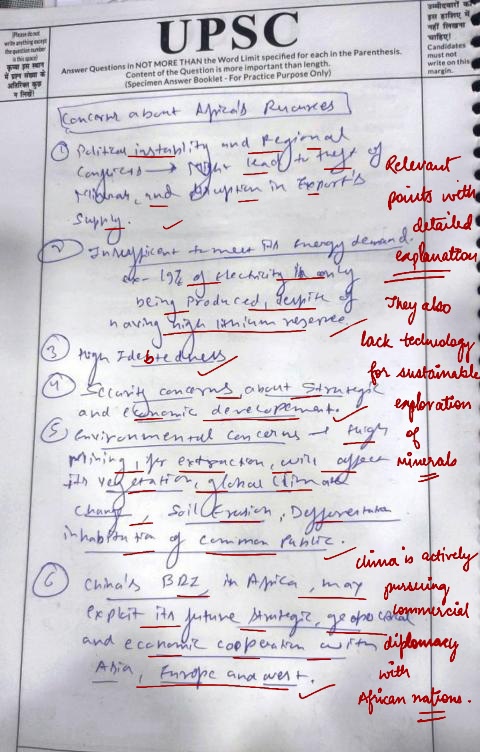 (Please do not write anything except the question number in this space)
कृपया इस स्थान में प्रश्न संख्या के अतिरिक्त कुछ न लिखें।
UPSC
Answer Questions in NOT MORE THAN the Word Limit specified for each in the Parenthesis.
Content of the Question is more important than length.
(Specimen Answer Booklet - For Practice Purpose Only)
उम्मीदवारों को इस हाशिए में नहीं लिखना चाहिए।
Candidates must not write on this margin.
Concerns about Africa's Resources
① Political instability and Regional
Congress → Might lead to theft of
Minerals, and disruption in Export's
Supply.
② Insufficient to meet its energy demand.
ex- 19% of electricity is only
being produced, despite of
having high lithium reserve.
③ High Idebtedness
④ Security concerns about Strategic
and economic developement.
⑤ environmental concerns → high
mining, for extraction, will affect
its vegetation, global climate
change, Soil Erosion,
inhabitation of common public.
⑥ China's BRI in Africa, may
exploit its future strategic, geopolitical
and economic cooperation with
Asia, Europe and west.
Relevant
points with
detailed
explanation
They also
lack technology
for sustainable
exploration
of
minerals
China is actively
pursuing
commercial
diplomacy
with
African nations.